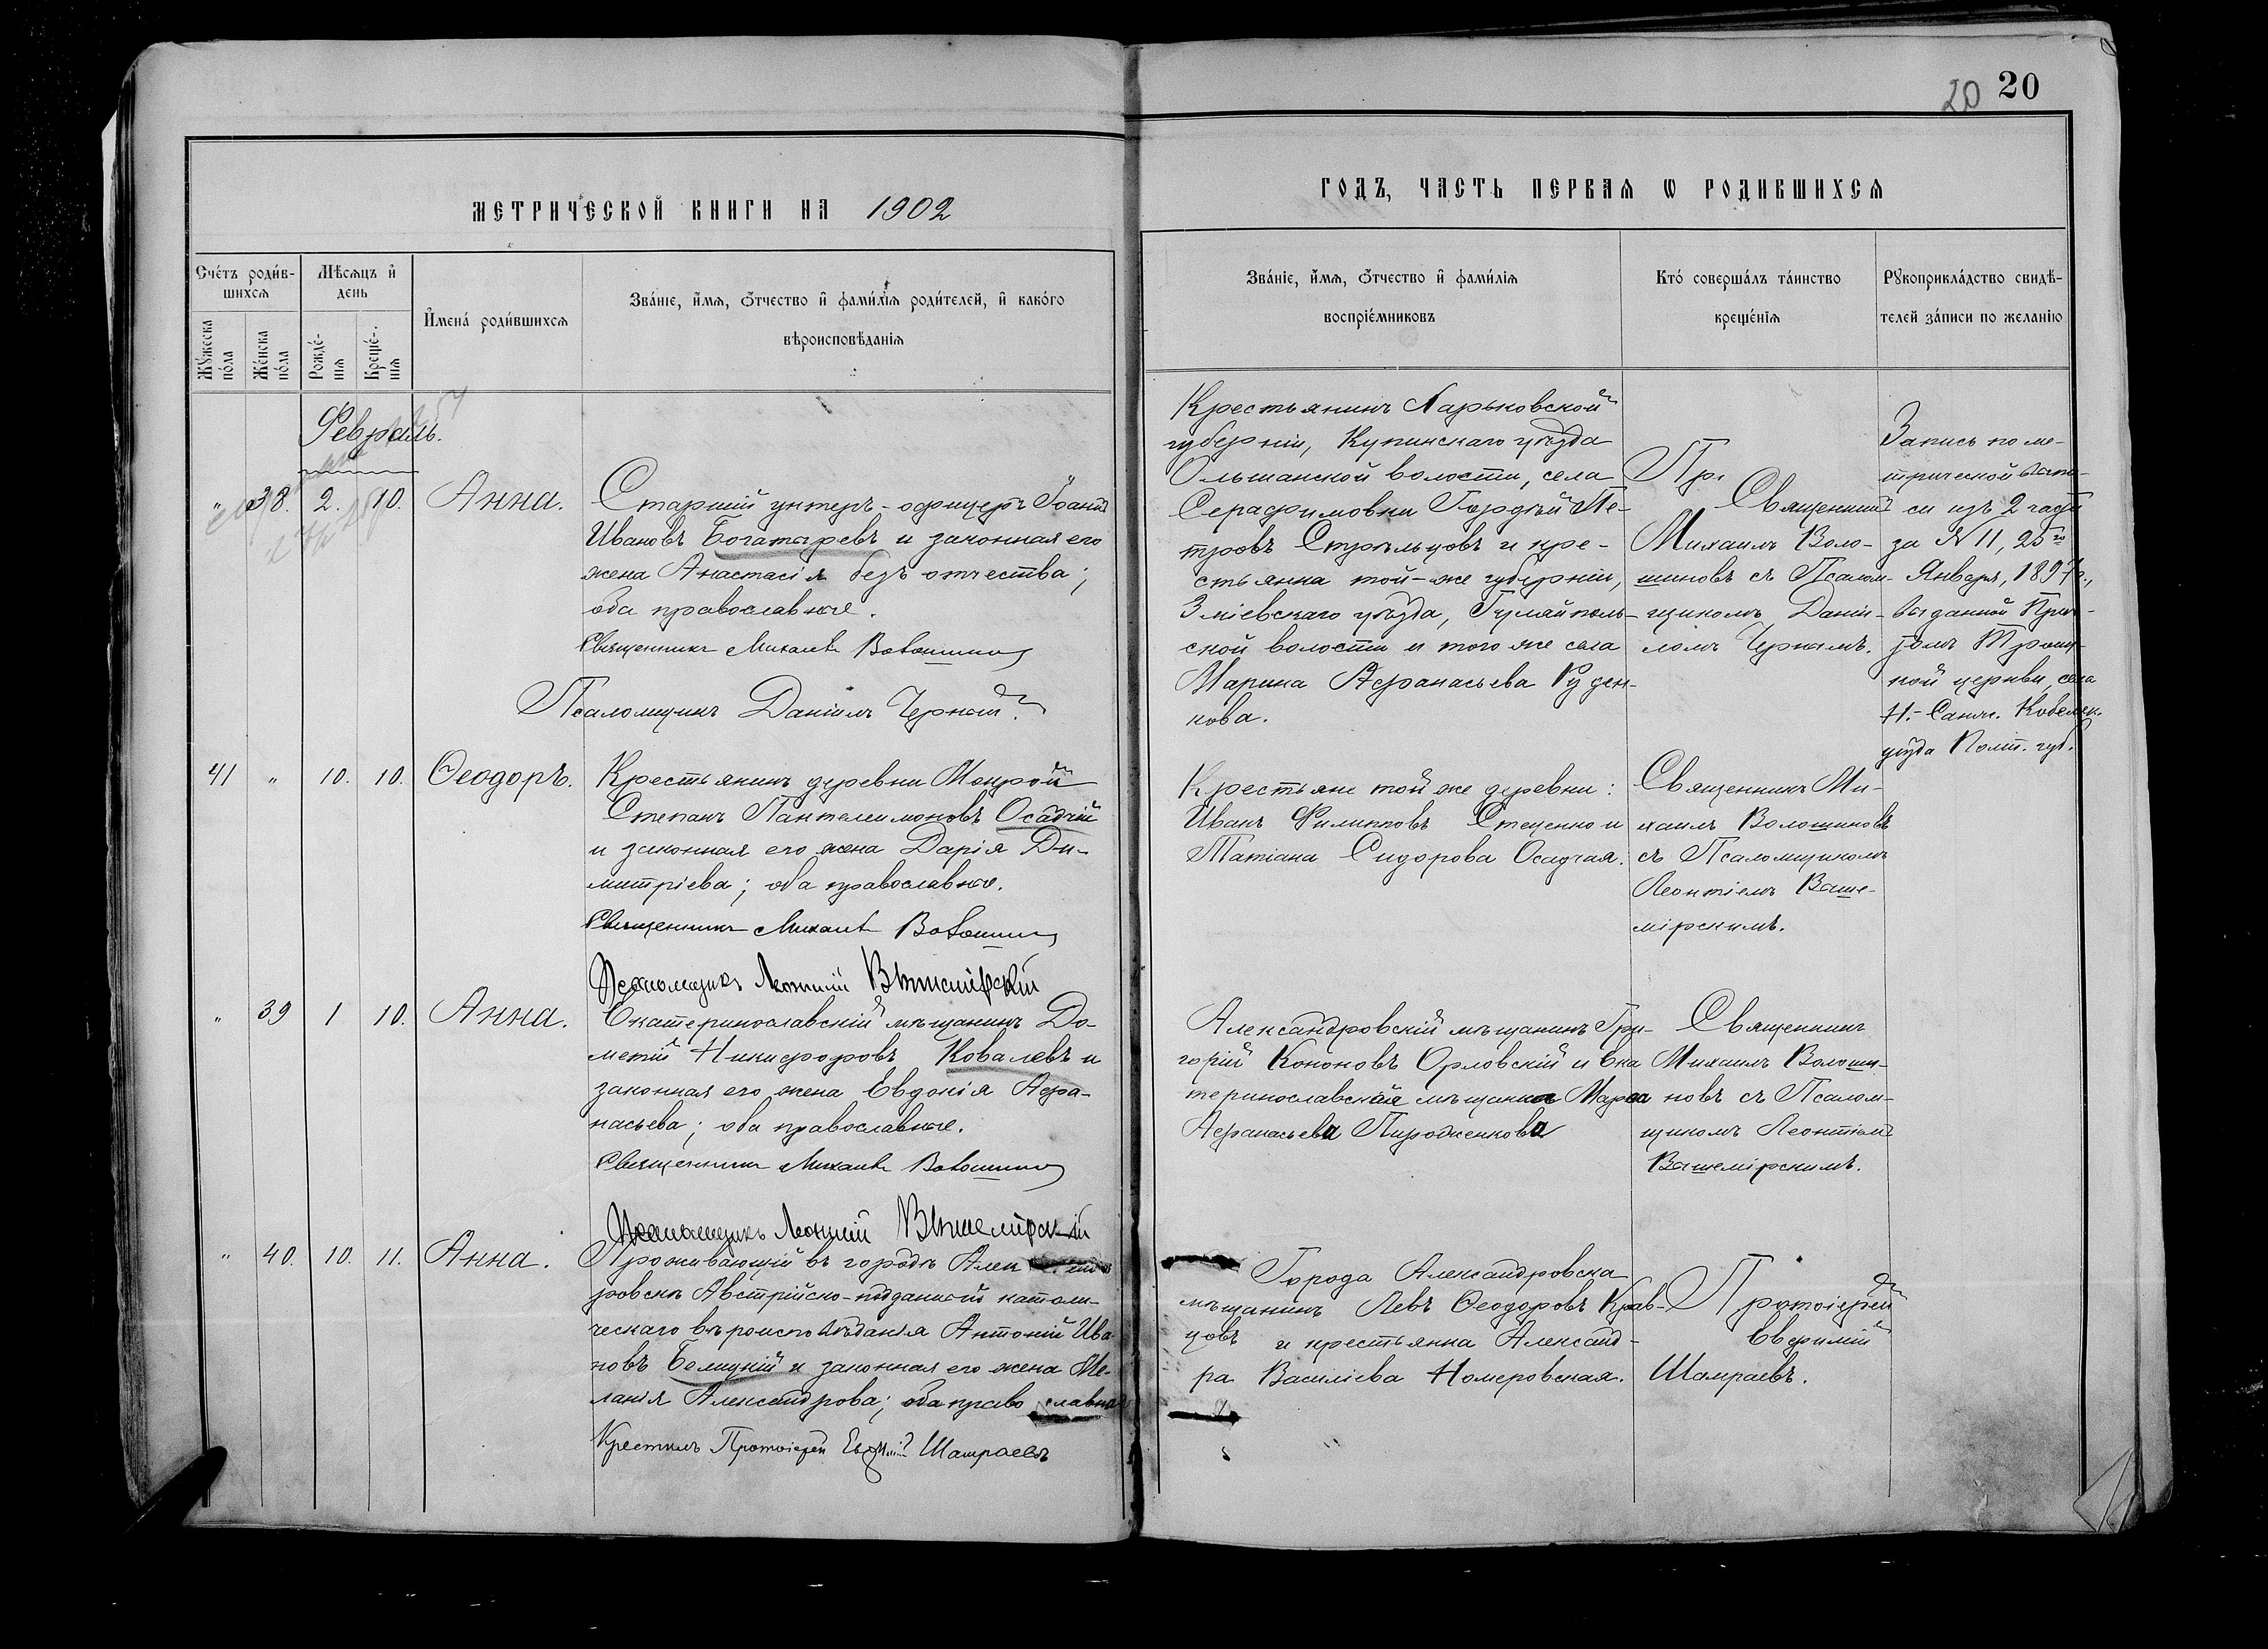 20 20
МЕТРИЧЕСКОЙ КНИГИ НА 1902
ГОДЪ, ЧАСТЬ ПЕРВАѦ Ѡ РОДИВШИХСѦ
Счéтъ роди́в-
шихсѧ
Мѣ́сѧцъ и҆
день
И҆мена̀ роди́вшихсѧ
Зва́нїе, и҆́мѧ, ѻ҆́тчество и҆ фами́лїѧ роди́телей, и҆ како́гѡ
вѣроисповѣ́данїѧ
Мꙋ́жеска
по́ла
Же́нска
по́ла
Рожде́-
нїѧ
Креще́-
нїѧ
Зва́нїе, и҆́мѧ, ѻ҆́тчество и҆ фами́лїѧ
воспрїе́мниковъ
Кто̀ соверша́лъ та́инство
креще́нїѧ
Рꙋкоприкла́дство свидѣ́-
телей за́писи по жела́нїю
Февраль.
" 38. 2. 10. Анна.
Старшій унтеръ-офицеръ Іоаннъ
Ивановъ Богатыревъ и законная его
жена Анастасія безъ отчества;
оба православные.
Священникъ Михаилъ Волошинов
Псаломщикъ Даніилъ Черный.
Крестьянинъ Харьковской
губерніи, Купянскаго уѣзда
Ольшанской волости, села
Серафимовки Гордѣй Пе-
тровъ Стрѣльцовъ и кре-
стьянка той-же губерніи,
Зміевскаго уѣзда, Гуляйполь-
ской волости и того же села
Марина Афанасьева Руден-
кова.
Пр.
Священникъ
Михаилъ Воло-
шиновъ съ Псалом-
щикомъ Даніи-
ломъ Чернымъ.
Запись по ме-
трической
си изъ 2 части
за № 11, 25го
Января, 1897г.,
выданной Прич-
томъ Троиц-
кой церкви, села
Н.-Санж. Кобеляк.
уѣзда Полт. губ.
41 " 10. 10. Ѳеодоръ.
Крестьянинъ деревни Мокрой
Степанъ Пантелеимоновъ Осадчій
и законная его жена Дарія Ди-
митріева; оба православные.
Священникъ Михаилъ Волошинов
Псаломщикъ Леонтій Вышемірскій
Крестьяне той же деревни:
Иванъ Филипповъ Стеценко и
Татіана Сидорова Осадчая.
Священникъ Ми-
хаилъ Волошиновъ
съ Псаломщикомъ
Леонтіемъ Выше-
мірскимъ.
" 39 1 10. Анна.
Екатеринославскій мѣщанинъ До-
метій Никифоровъ Ковалевъ и
законная его жена Евдокія Афа-
насьева; оба православные.
Священникъ Михаилъ Волошинов
Псаломщикъ Леонтій Вышемірскій
Александровскій мѣщанинъ Гри-
горій Кононовъ Орловскій и Ека
теринославская мѣщанка
Афанасьева Пироженкова
Священникъ
Михаилъ Волоши-
новъ съ Псалом-
щикомъ Леонтіемъ
Вышемірскимъ.
" 40. 10. 11. Анна.
Проживающій въ городѣ Алек
ровскѣ Австрійско-подданный католи-
ческаго вѣроисповѣданія Антоній Ива
новъ Белицкій и законная его жена Ме-
ланія Александрова; оба православные
Крестилъ Протоіерей Евфимій Шамраевъ
Города Александровска
мѣщанинъ Левъ Ѳеодоровъ Крав-
цовъ и крестьянка Александ-
ра Василіева Номеровская.
Протоіерей
Евфимій
Шамраевъ.